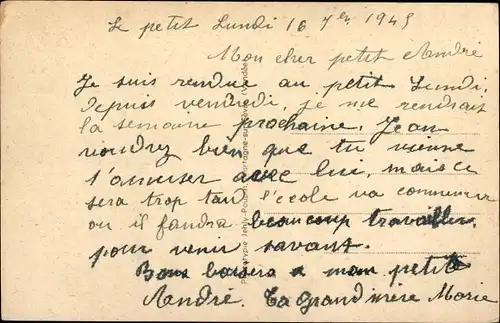 Le petit Lundi 16 7bre 1945
Mon cher petit André
Je suis rendue au petit Lundi,
depuis vendredi, je me rendrait
la semaine prochaine, Jean
voudrez bien que tu vienne
t'amuser avec lui, mais ce
sera trop tard l'ecole va commencer
ou il faudra beaucoup travailler
pour venir savant.
Bons baisers a mon petit
André. Ta Grand mère Marie
Phototype Jehly-Poupin, Mortagne-sur-Sèvre (Vendée)